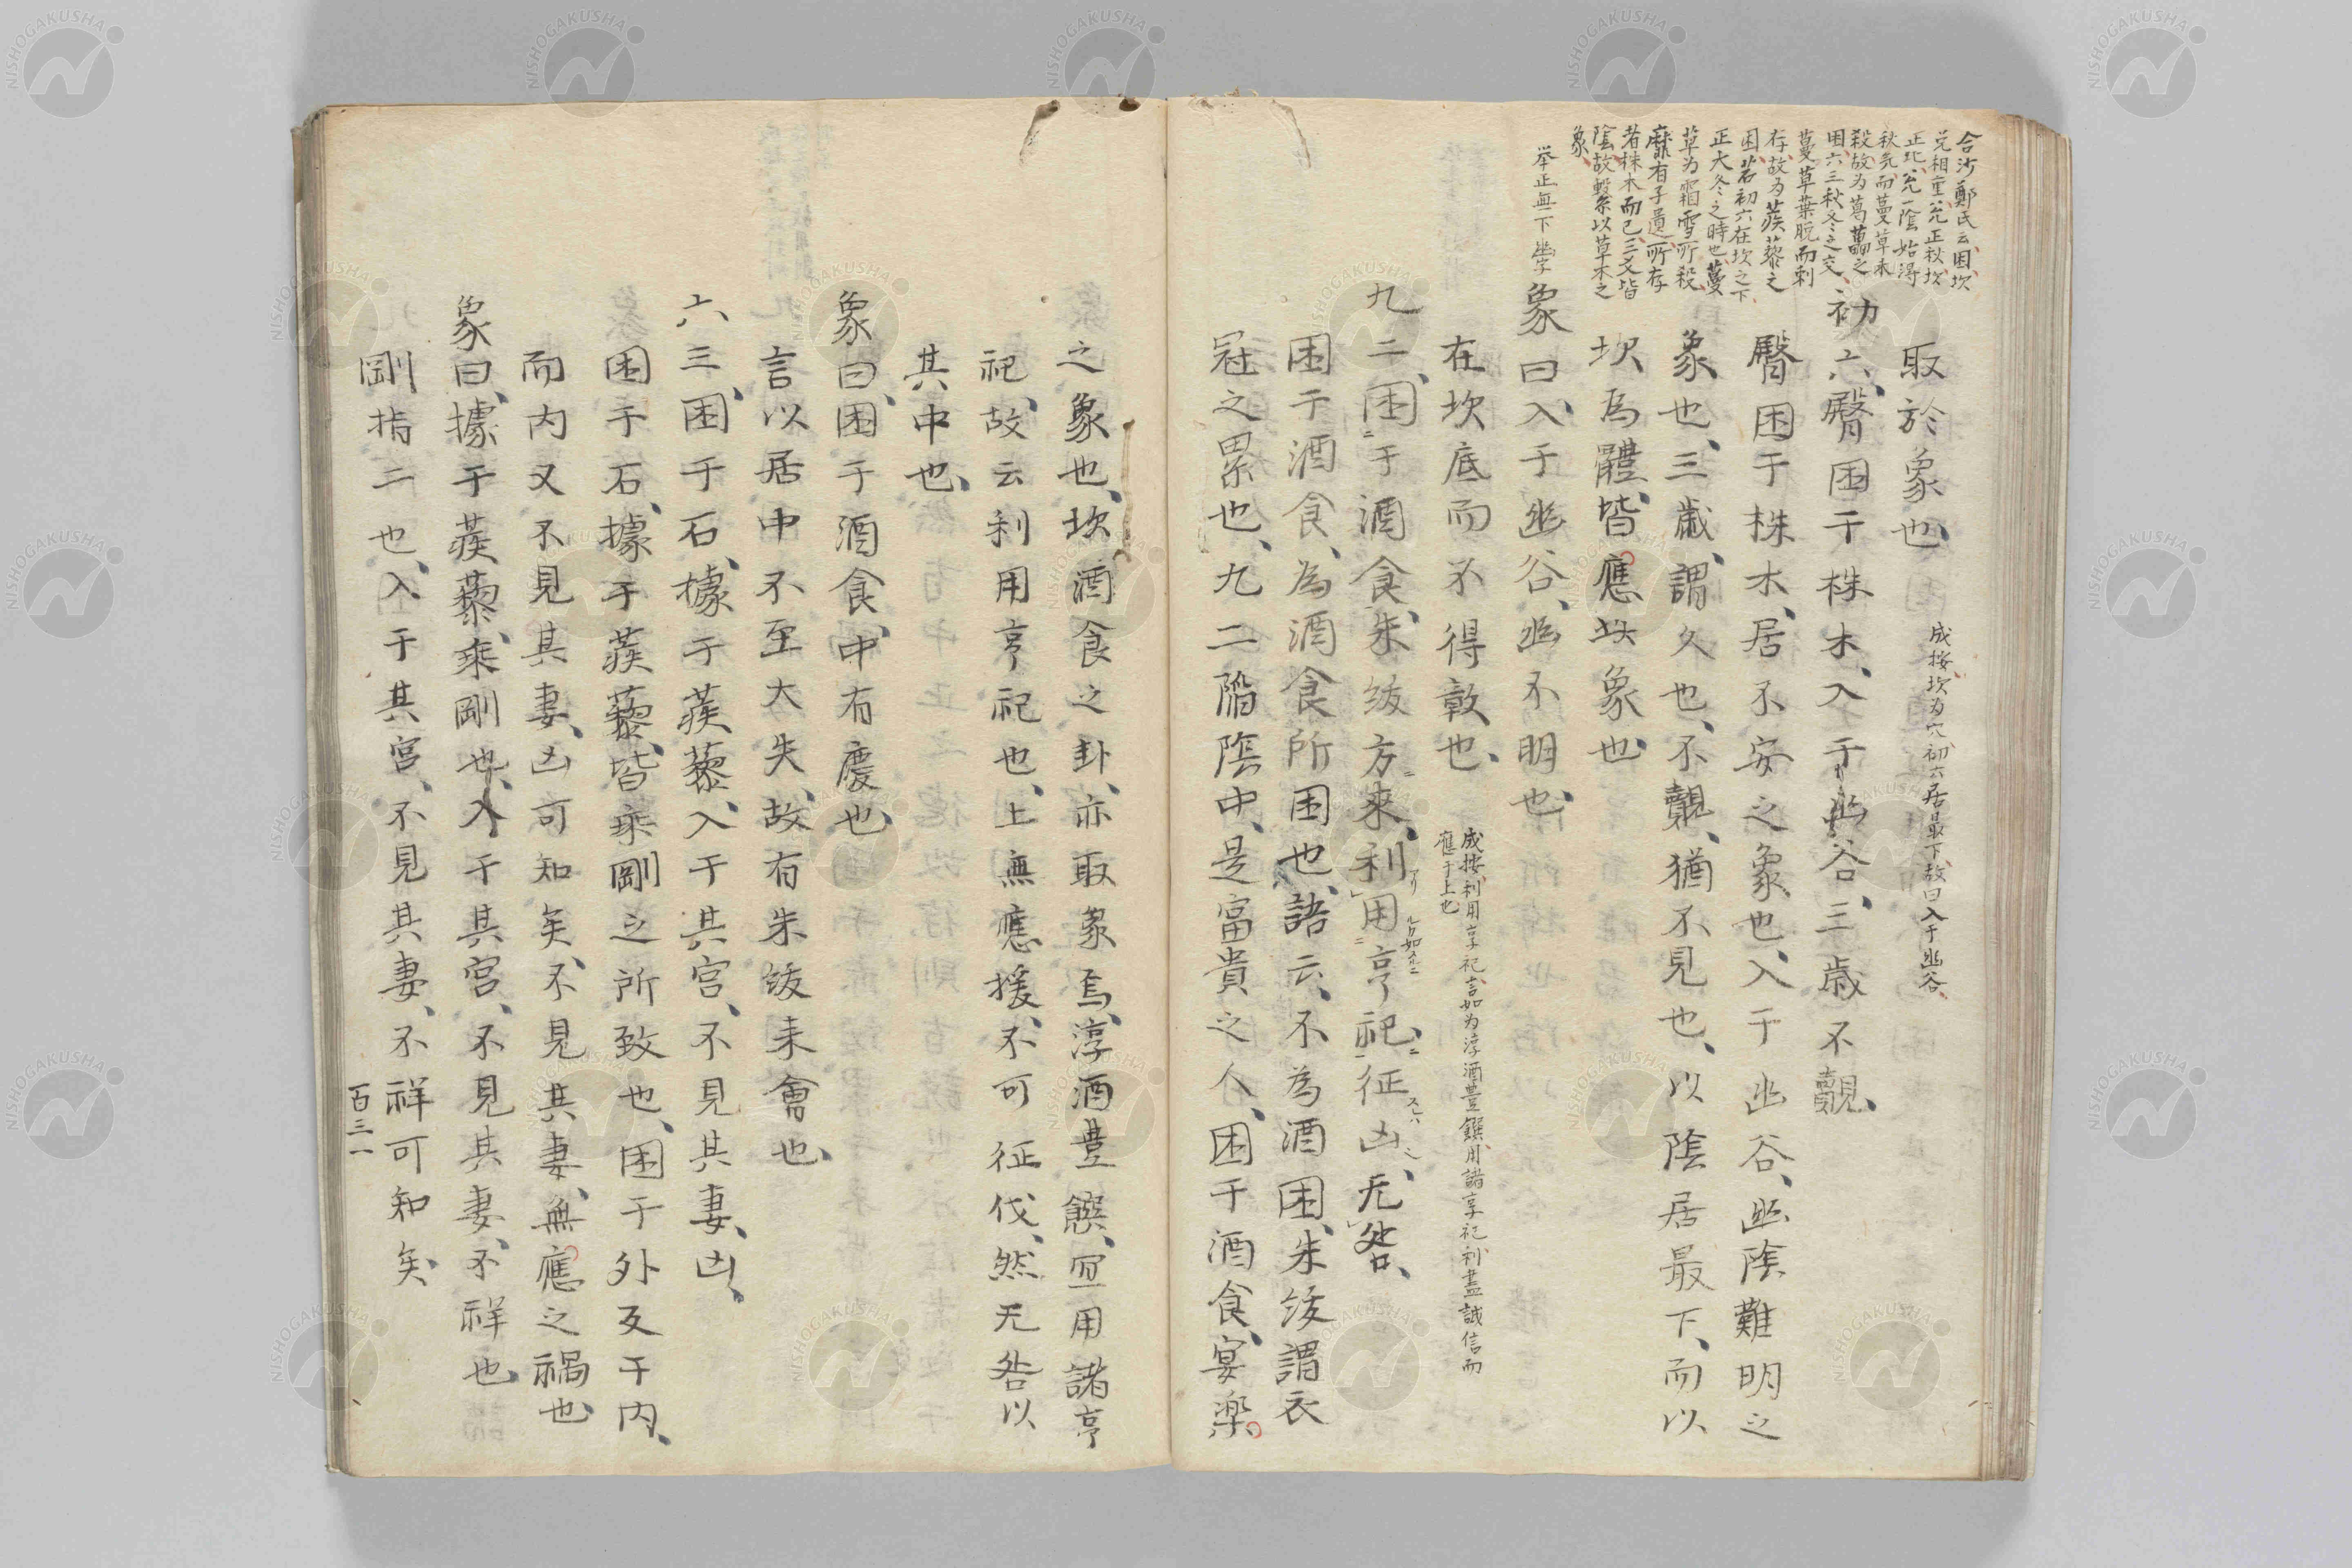 合沙鄭氏云、困、坎
兌相重、兌正秋、坎
正北、兌一陰始得
秋気、而蔓草未
殺、故为葛藟之
困、六三秋冬之交、
蔓草葉脱而刺
存、故为蒺藜之
困、若初六在坎之下
正大冬之時也、蔓
草为霜雪所殺、
靡有子遺、所存
者株木而已、三爻皆
陰、故繫以草木之
象、
挙正無下幽字
取於象也、
成按、坎为穴、初六居最下、故曰入于幽谷、
初六、臀困于株木、入于幽谷、三歳不覿、
臀困于株木、居不安之象也、入于幽谷、幽陰難明之
象也、三歳、謂久也、不覿、猶不見也、以陰居最下、而以
坎爲體、皆應其象也
象曰、入于幽谷、幽不明也、
在坎底而不得彰也、
成按、利用享祀、言如为淳酒豊饌、用諸享祀、利盡誠信而
應于上也
九二、困于酒食、朱紱方來、利用亨祀、征凶、无咎、
困于酒食、為酒食所困也、語云、不為酒困、朱紱謂衣
冠之累也、九二陥陰中、是富貴之人、困于酒食、宴楽
之象也、坎酒食之卦、亦取象焉、淳酒豊饌、宜用諸亨
祀、故云利用亨祀也、上無應援、不可征伐、然无咎以
其中也、
象曰、困于酒食、中有慶也、
言以居中不至大失、故有朱紱来會也、
六三、困于石、據于蒺藜、入于其宮、不見其妻、凶、
困于石、據于蒺藜、皆乘剛之所致也、困于外反于内、
而内又不見其妻、凶可知矣、不見其妻、無應之禍也
象曰、據于蒺藜、乘剛也、入于其宮、不見其妻、不祥也、
剛指二也、入于其宮、不見其妻、不祥可知矣
百三一